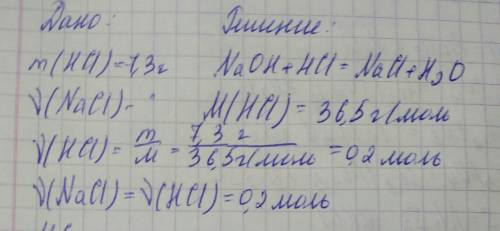 Дано: Решение:
m(HCl)=7,3г NaOH+HCl=NaCl+H₂O
ν(NaCl)- M(HCl)=36,5г/моль
ν(HCl)=m/M=7,3 г/36,5г/моль=0,2 моль
ν(NaCl)=ν(HCl)=0,2 моль